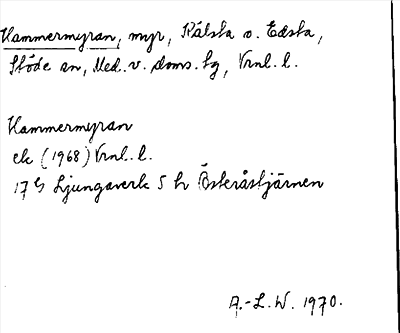 Hammermyran, myr, Kälsta o. Edsta,
Stöde sn, Med. v. doms. tg, Vrnl. l.
Hammermyran
ek (1968) Vrnl. l.
17 G Ljungaverk 5 h Österåstjärnen
A.-L. W. 1970.